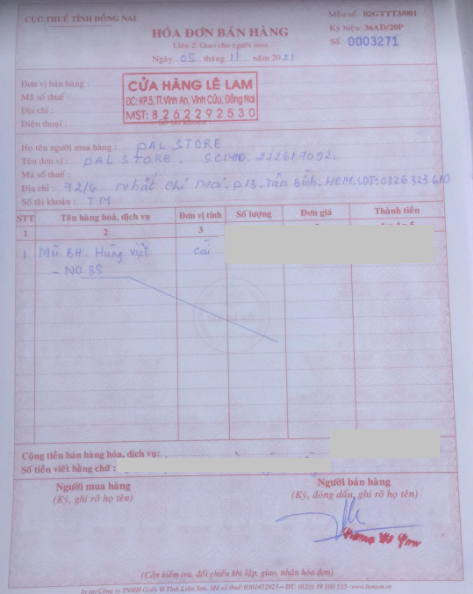 CỤC THUẾ TỈNH ĐỒNG NAI
Mẫu số: 02GTTT3/001
HÓA ĐƠN BÁN HÀNG
Ký hiệu: 36AD/20P
Liên 2: Giao cho người mua
Số: 0003271
Ngày 05 tháng 11 năm 2021
Đơn vị bán hàng :
CỬA HÀNG LÊ LAM
Mã số thuế :
ĐC: KP.5, TT.Vĩnh An, Vĩnh Cửu, Đồng Nai
Địa chỉ :
MST: 8262292530
Điện thoại :
Số tài khoản
Họ tên người mua hàng : PAL STORE
Tên đơn vị : PAL STORE. SCMND.
Mã số thuế :
Địa chỉ : 72/6 Nhất Chi Mai P.13. Tân Bình. HCM. SDT: 0826 323 610
Số tài khoản : TM
STT Tên hàng hoá, dịch vụ Đơn vị tính Số lượng Đơn giá Thành tiền
1 2 3
1 Mũ BH. Hùng Việt Cái
- NO.38
Cộng tiền bán hàng hóa, dịch vụ:
Số tiền viết bằng chữ :
Người mua hàng Người bán hàng
(Ký, ghi rõ họ tên) (Ký, đóng dấu, ghi rõ họ tên)
(Cần kiểm tra, đối chiếu khi lập, giao, nhận hóa đơn)